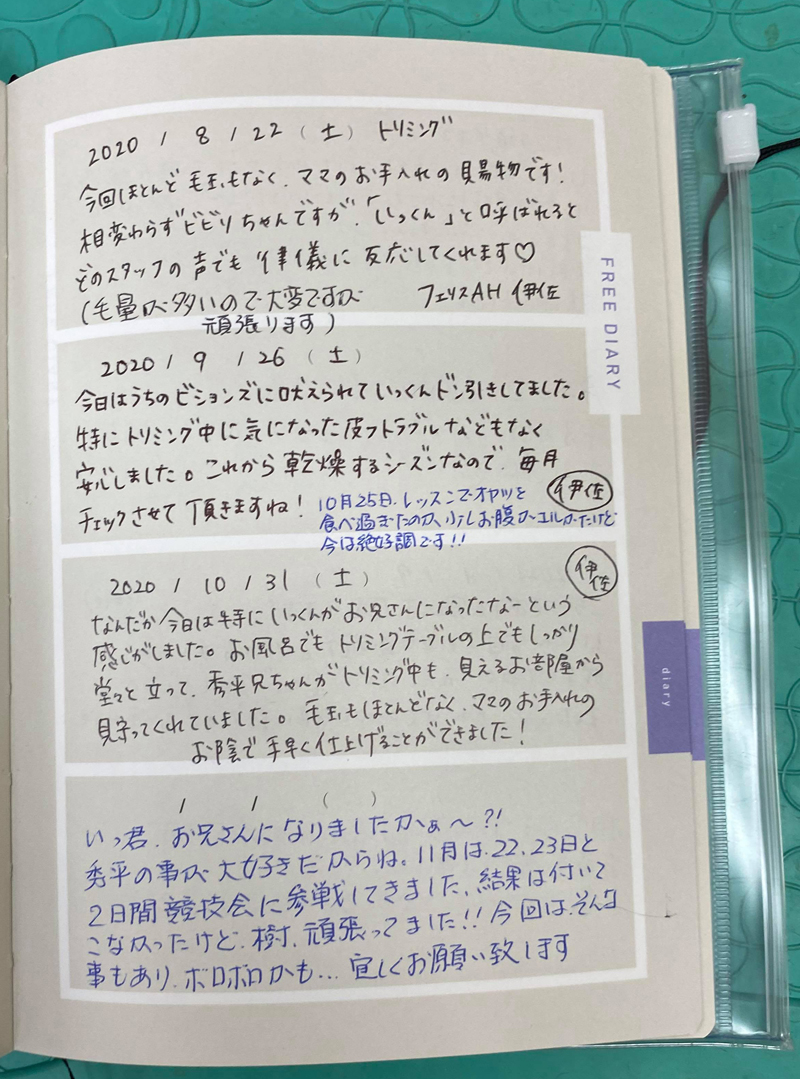 2020 / 8 / 22 (土) トリミング
今回ほとんど毛玉もなく、ママのお手入れの賜物です!
相変わらずビビりちゃんですが、「いっくん」と呼ばれると
どのスタッフの声でも律儀に反応してくれます♡
(毛量が多いので大変ですが フェリスAH 伊佐
頑張ります)
2020 / 9 / 26 (土)
今日はうちのビションズに吠えられていっくんドン引きしてました。
特にトリミング中に気になった皮フトラブルなどもなく
安心しました。これから乾燥するシーズンなので、毎月
チェックさせて頂きますね! 伊佐
10月25日、レッスンでオヤツを
食べ過ぎたのか、少しお腹がユルかったけど
今は絶好調です!!
2020 / 10 / 31 (土) 伊佐
なんだか今日は特にいっくんがお兄さんになったなーという
感じがしました。お風呂でもトリミングテーブルの上でもしっかり
堂々と立って、秀平兄ちゃんがトリミング中も、見えるお部屋から
見守ってくれていました。毛玉もほとんどなく、ママのお手入れの
お陰で手早く仕上げることができました!
/ / ( )
いっ君、お兄さんになりましたかぁ〜?!
秀平の事が大好きだからね。11月は、22、23日と
2日間競技会に参戦してきました、結果は付いて
こなかったけど、樹、頑張ってました!!今回は、そんな
事もあり、ボロボロかも…宜しくお願い致します
FREE DIARY
diary